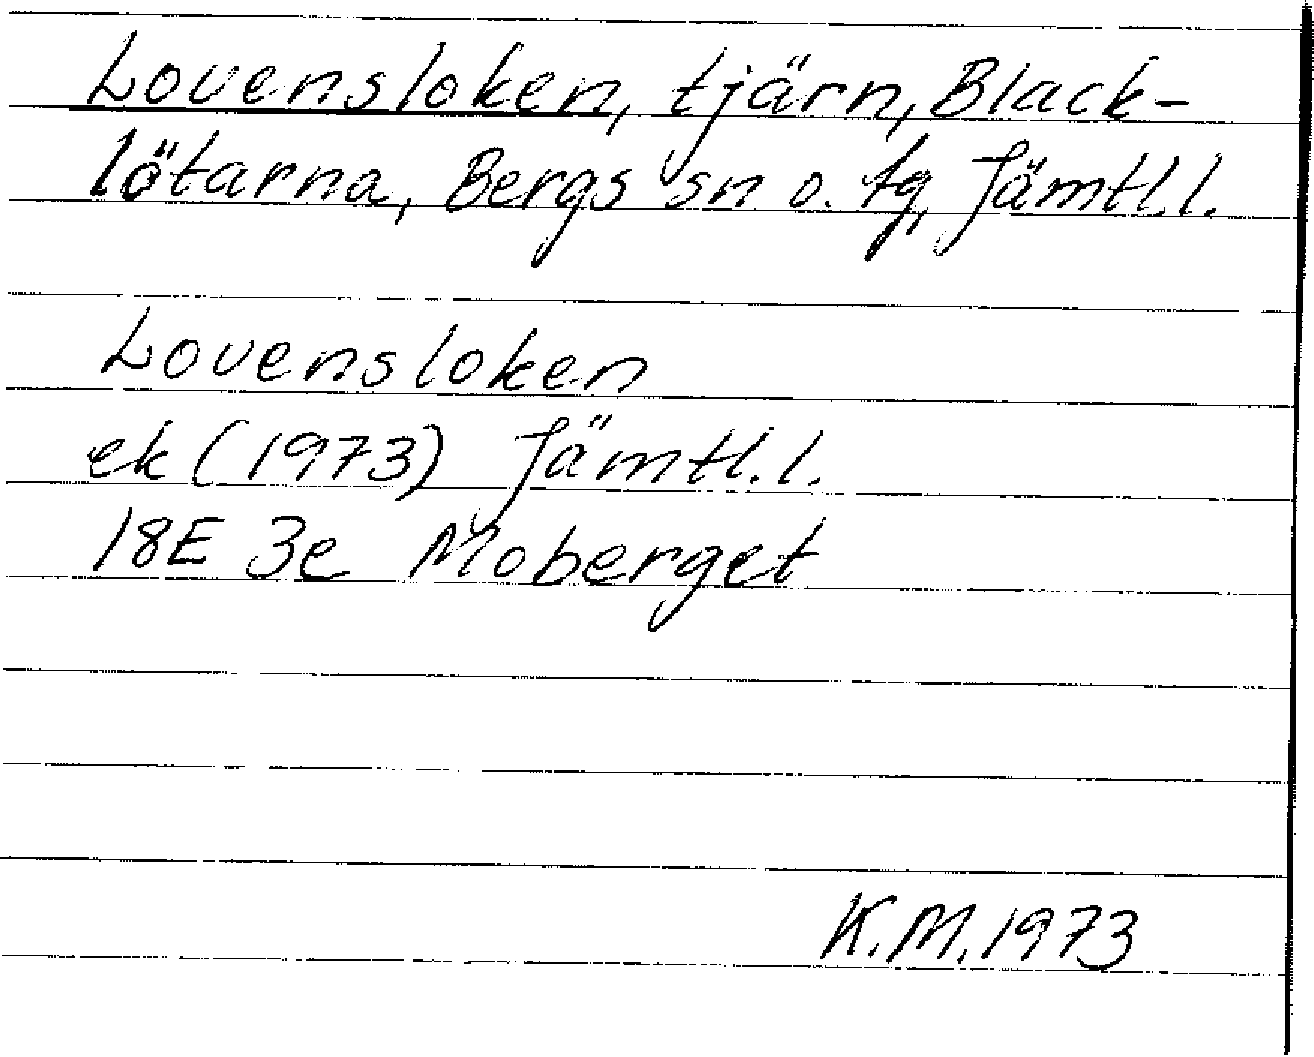 Lovensloken, tjärn, Black-
lötarna, Bergs sn o. tg, Jämtl.l.
Lovensloken
ek (1973) Jämtl.l.
18E 3e Moberget
K.M. 1973